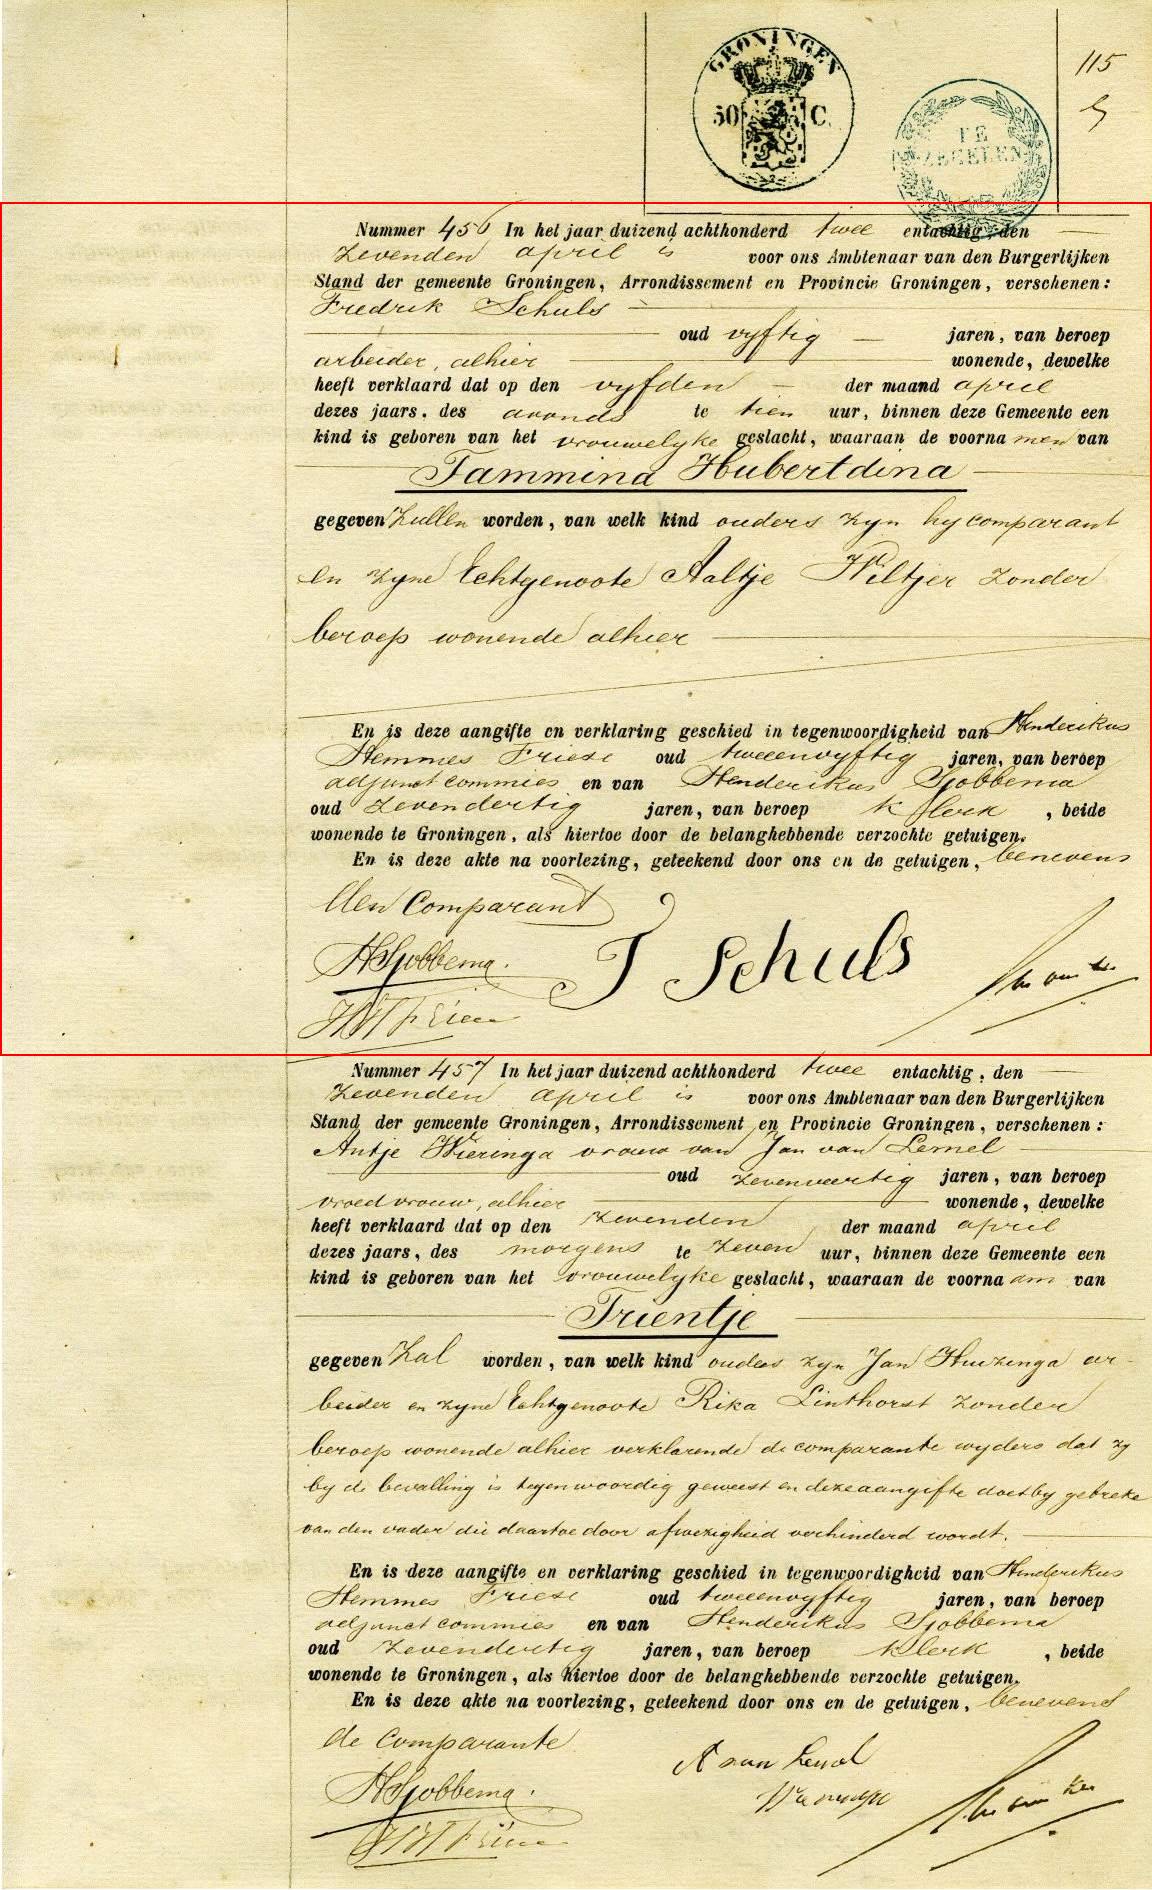 GRONINGEN
50 C.
TE
ZEGELEN
115
Nummer 456 In het jaar duizend achthonderd twee entachtig, den
zevenden april is voor ons Ambtenaar van den Burgerlijken
Stand der gemeente Groningen, Arrondissement en Provincie Groningen, verschenen:
Fredrik Schuls
oud vyftig jaren, van beroep
arbeider, alhier wonende, dewelke
heeft verklaard dat op den vyfden der maand april
dezes jaars. des avonds te tien uur, binnen deze Gemeente een
kind is geboren van het vrouwelyke geslacht, waaraan de voornamen van
Tammina Hubertdina
gegeven zullen worden, van welk kind ouders zyn hy comparant
en zyne Echtgenoote Aaltje Wiltjer zonder
beroep wonende alhier
En is deze aangifte en verklaring geschied in tegenwoordigheid van Henderikus
Hemmes Friese oud tweeenvyftig jaren, van beroep
adjunct commies en van Henderikus Sjobbema
oud zevendertig jaren, van beroep klerk, beide
wonende te Groningen, als hiertoe door de belanghebbende verzochte getuigen.
En is deze akte na voorlezing, geteekend door ons en de getuigen, benevens
den Comparant
HSjobbema. F Schuls
Nummer 457 In het jaar duizend achthonderd twee entachtig, den
zevenden april is voor ons Ambtenaar van den Burgerlijken
Stand der gemeente Groningen, Arrondissement en Provincie Groningen, verschenen:
Antje Wieringa vrouw van Jan van Lemel
oud zevenveertig jaren, van beroep
vroedvrouw, alhier wonende, dewelke
heeft verklaard dat op den zevenden der maand april
dezes jaars, des morgens te zeven uur, binnen deze Gemeente een
kind is geboren van het vrouwelyke geslacht, waaraan de voornaam van
Trientje
gegeven zal worden, van welk kind ouders zyn Jan Huizinga ar-
beider en zyne Echtgenoote Rika Linthorst zonder
beroep wonende alhier verklarende de comparante wyders dat zy
by de bevalling is tegenwoordig geweest en deze aangifte doet by gebreke
van den vader die daartoe door afwezigheid verhinderd wordt.
En is deze aangifte en verklaring geschied in tegenwoordigheid van Henderikus
Hemmes Friese oud tweeenvyftig jaren, van beroep
adjunct commies en van Henderikus Sjobbema
oud zevendertig jaren, van beroep klerk, beide
wonende te Groningen, als hiertoe door de belanghebbende verzochte getuigen.
En is deze akte na voorlezing, geteekend door ons en de getuigen, benevens
de Comparante
HSjobbema. A van Lemel